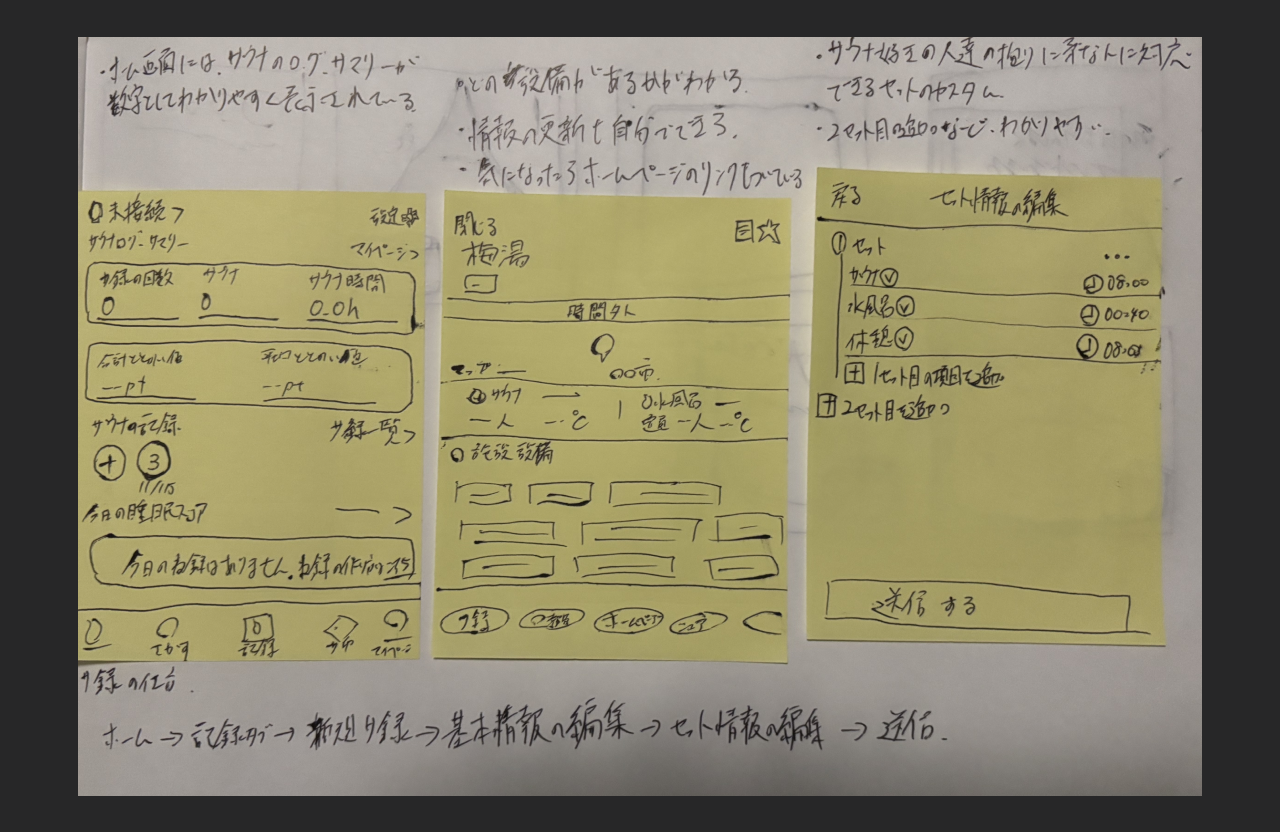 ・ホーム画面には、サウナのログ、サマリーが
数字としてわかりやすく表示されている。
・どの設備があるかがわかる。
・情報の更新も自分でできる。
・気になったらホームページのリンクもついている
・サウナ好きの人達の拘りに柔なんに対応
できるセットのカスタム
・2セット目の追加など、わかりやすい。
未接続 >
設定
サウナログ・サマリー
マイページ >
サ録の回数 サウナ サウナ時間
0 0 0.0h
合計ととのい値 平均ととのい値
--pt --pt
サウナの記録
サ録一覧 >
+ 3
11/15
今日の睡眠スコア
今日のサ録はありません。サ録の作成は
さがす 記録 マイページ
閉じる
梅湯
時間外
マップ
○○市
サウナ 水風呂
--人 --℃ 定員 --人 --℃
施設設備
サ録 ホームページ シェア
戻る セット情報の編集
① セット ...
サウナ 08:00
水風呂 00:40
休憩
+ 1セット目の項目を追加
+ 2セット目を追加
送信する
サ録の仕方.
ホーム → 記録タブ → 新規サ録 → 基本情報の編集 → セット情報の編集 → 送信.